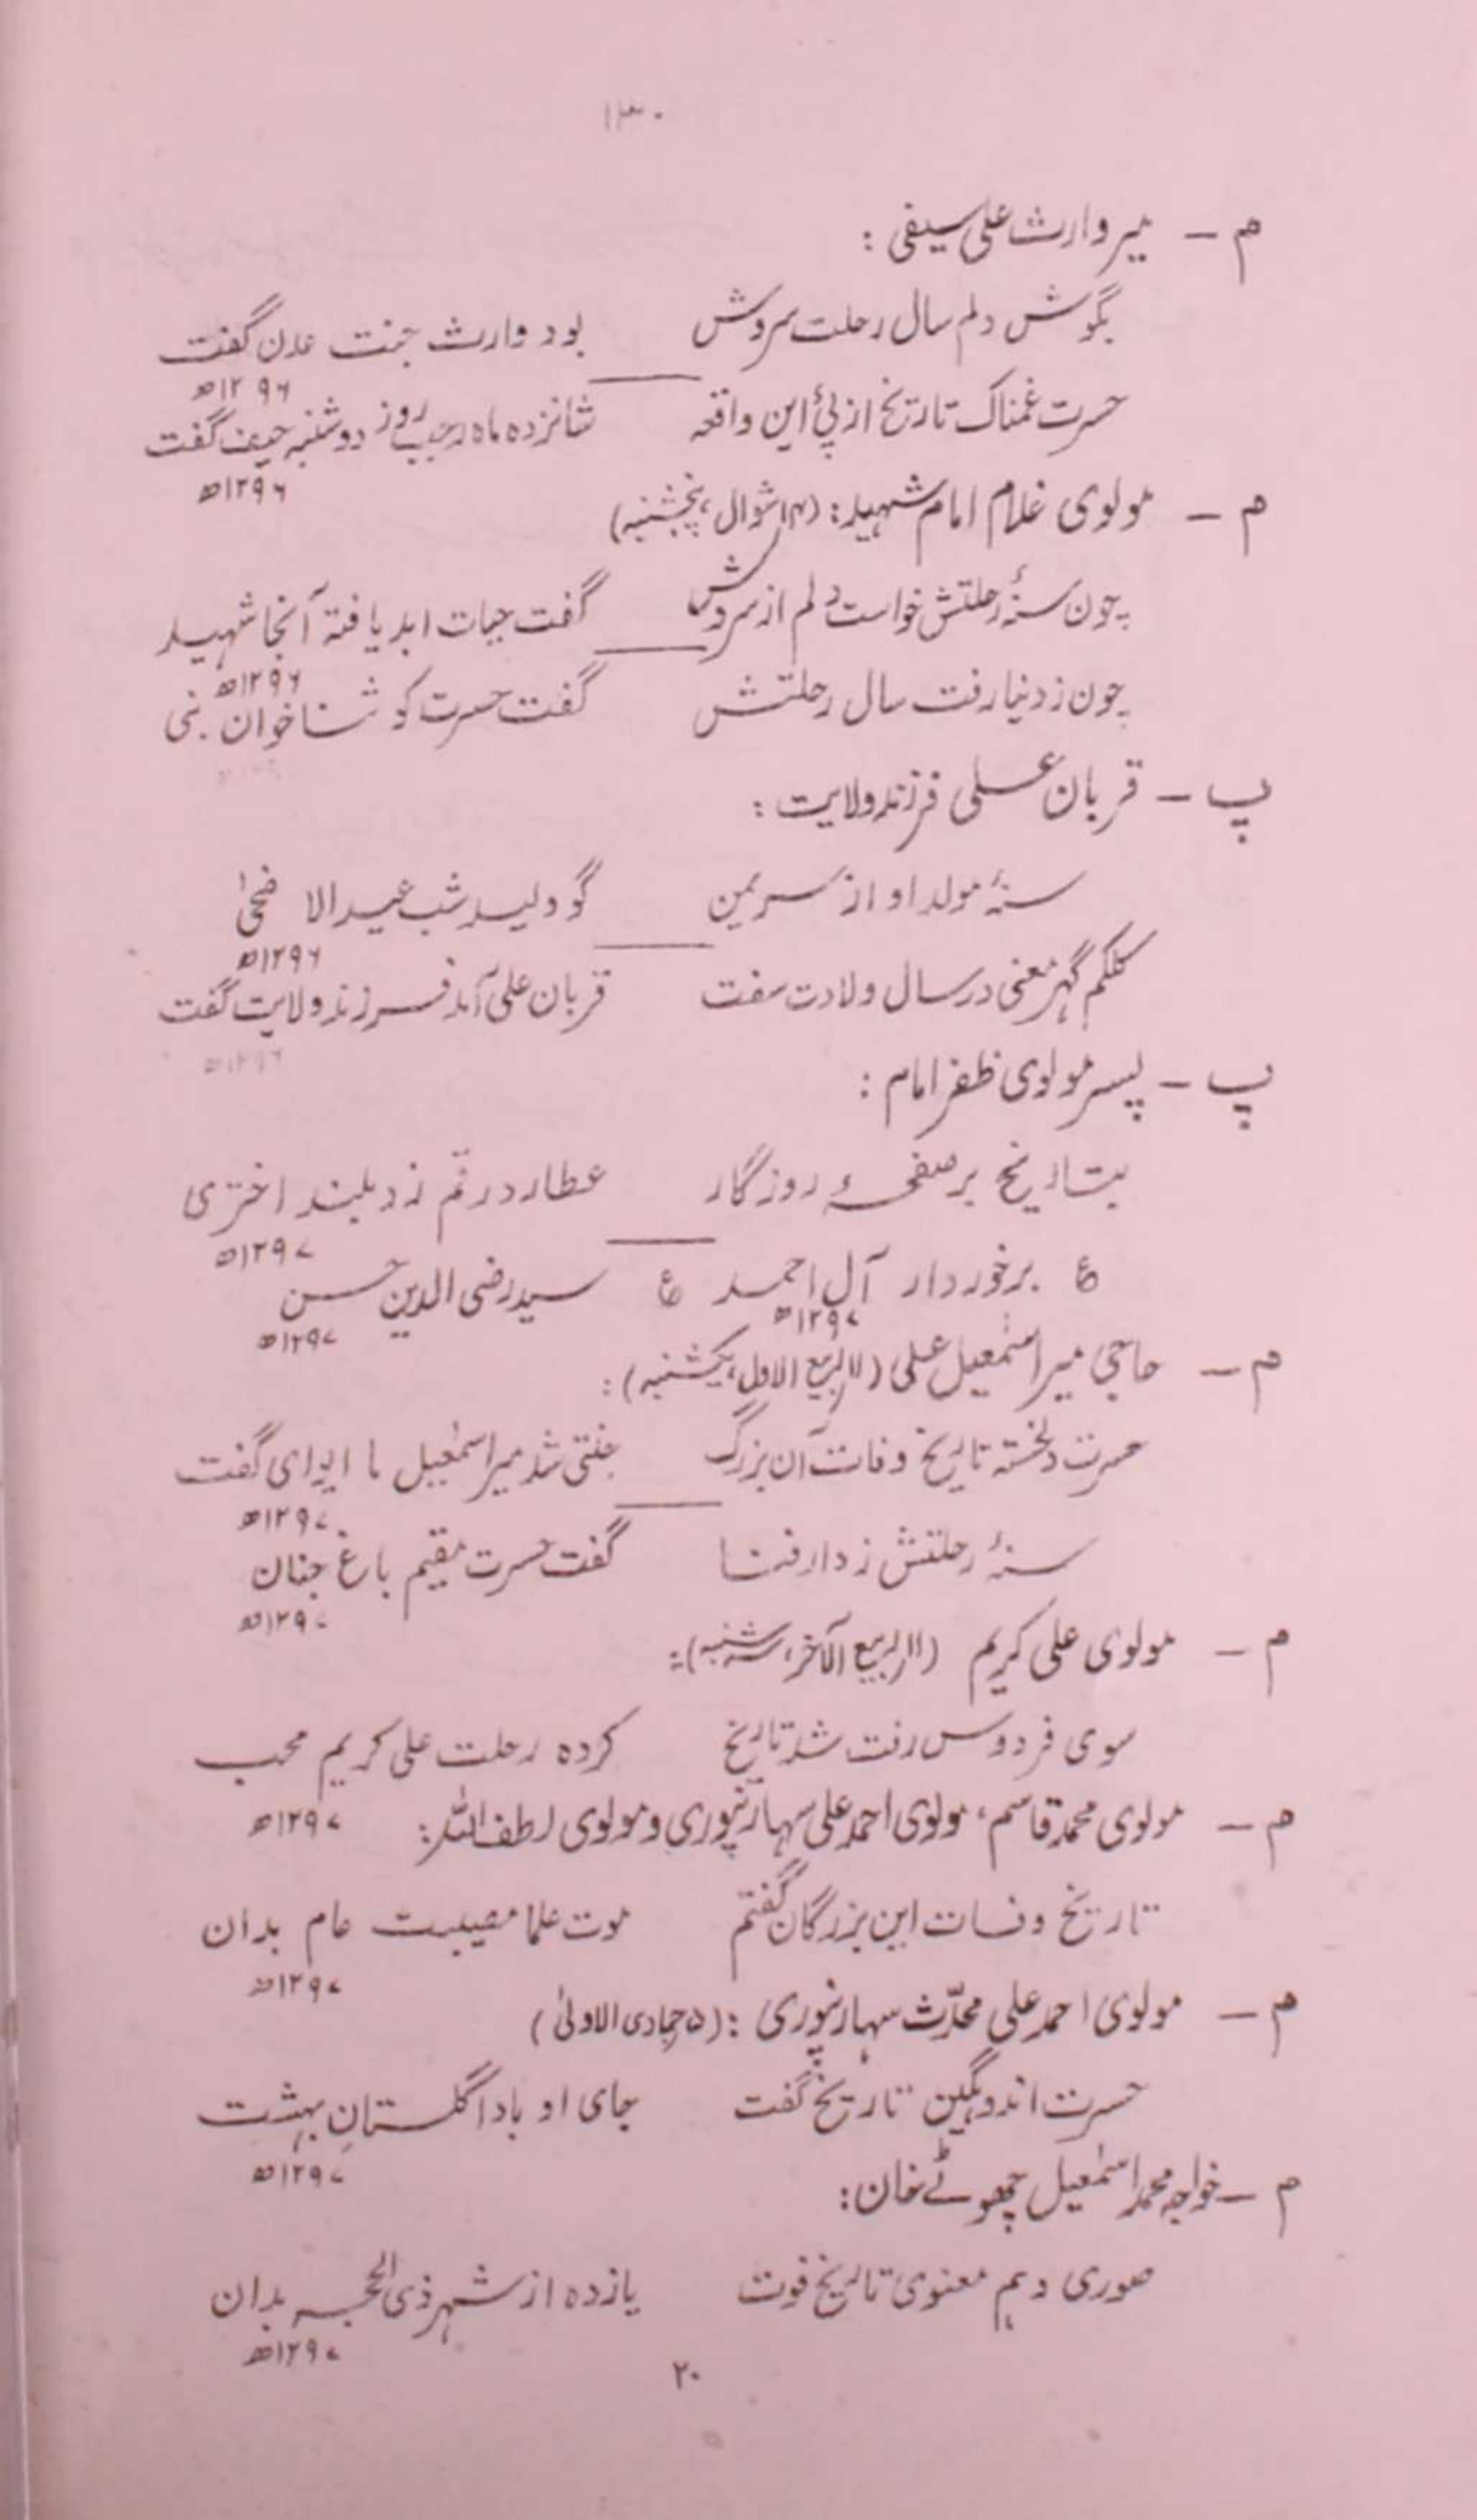 ۱۳۰
م – میر وارث علی سیفی :
بگوش دلم سال رحلت سروش بود وارث جنت عدن گفت
۱۲۹۶ھ
حسرت غمناک تاریخ از پئ این واقعہ شانزدہ ماہ رجب روز دوشنبہ حیف گفت
۱۲۹۶ھ
م – مولوی غلام امام شہید : (۱۴ شوال، پنجشنبہ)
چون سنۂ رحلتش خواست دلم از سروش گفت حیات ابد یافتہ آنجا شہید
۱۲۹۶ھ
چون ز دنیا رفت سال رحلتش گفت حسرت کو ثناخوان نبی
۱۲۹۶ھ
پ – قربان علی فرزند ولایت :
سنۂ مولد او از سر یمن گو ولید شب عید الاضحیٰ
۱۲۹۶ھ
کلکم گہر معنی در سال ولادت سفت قربان علی آمد فرزند ولایت گفت
۱۲۹۶ھ
پ – پسر مولوی ظفر امام :
بتاریخ بر صفحۂ روزگار عطارد رقم زد بلند اختری
۱۲۹۷ھ
ع برخوردار آل احمد ع سید رضی الدین حسن
۱۲۹۷ھ ۱۲۹۷ھ
م – حاجی میر اسمٰعیل علی (۱۱ ربیع الاول، یکشنبہ) :
حسرت دلخستہ تاریخ وفات آن بزرگ جنتی شد میر اسمٰعیل ما ایوای گفت
۱۲۹۷ھ
سنۂ رحلتش ز دار فنا گفت حسرت مقیم باغ جنان
۱۲۹۷ھ
م – مولوی علی کریم (۱۱ ربیع الآخر، سہ شنبہ) :
سوی فردوس رفت شد تاریخ کردہ رحلت علی کریم محب
۱۲۹۷ھ
م – مولوی محمد قاسم، مولوی احمد علی سہارنپوری و مولوی لطف اللہ :
تاریخ وفات این بزرگان گفتم موت علما مصیبت عام بدان
۱۲۹۷ھ
م – مولوی احمد علی محدّث سہارنپوری : (۵ جمادی الاولیٰ)
حسرت اندوہگین تاریخ گفت جای او بادا گلستانِ بہشت
۱۲۹۷ھ
م – خواجہ محمد اسمٰعیل چھوٹے خان :
صوری و ہم معنوی تاریخ فوت یازدہ از شہر ذی الحجہ بدان
۱۲۹۷ھ
۲۰